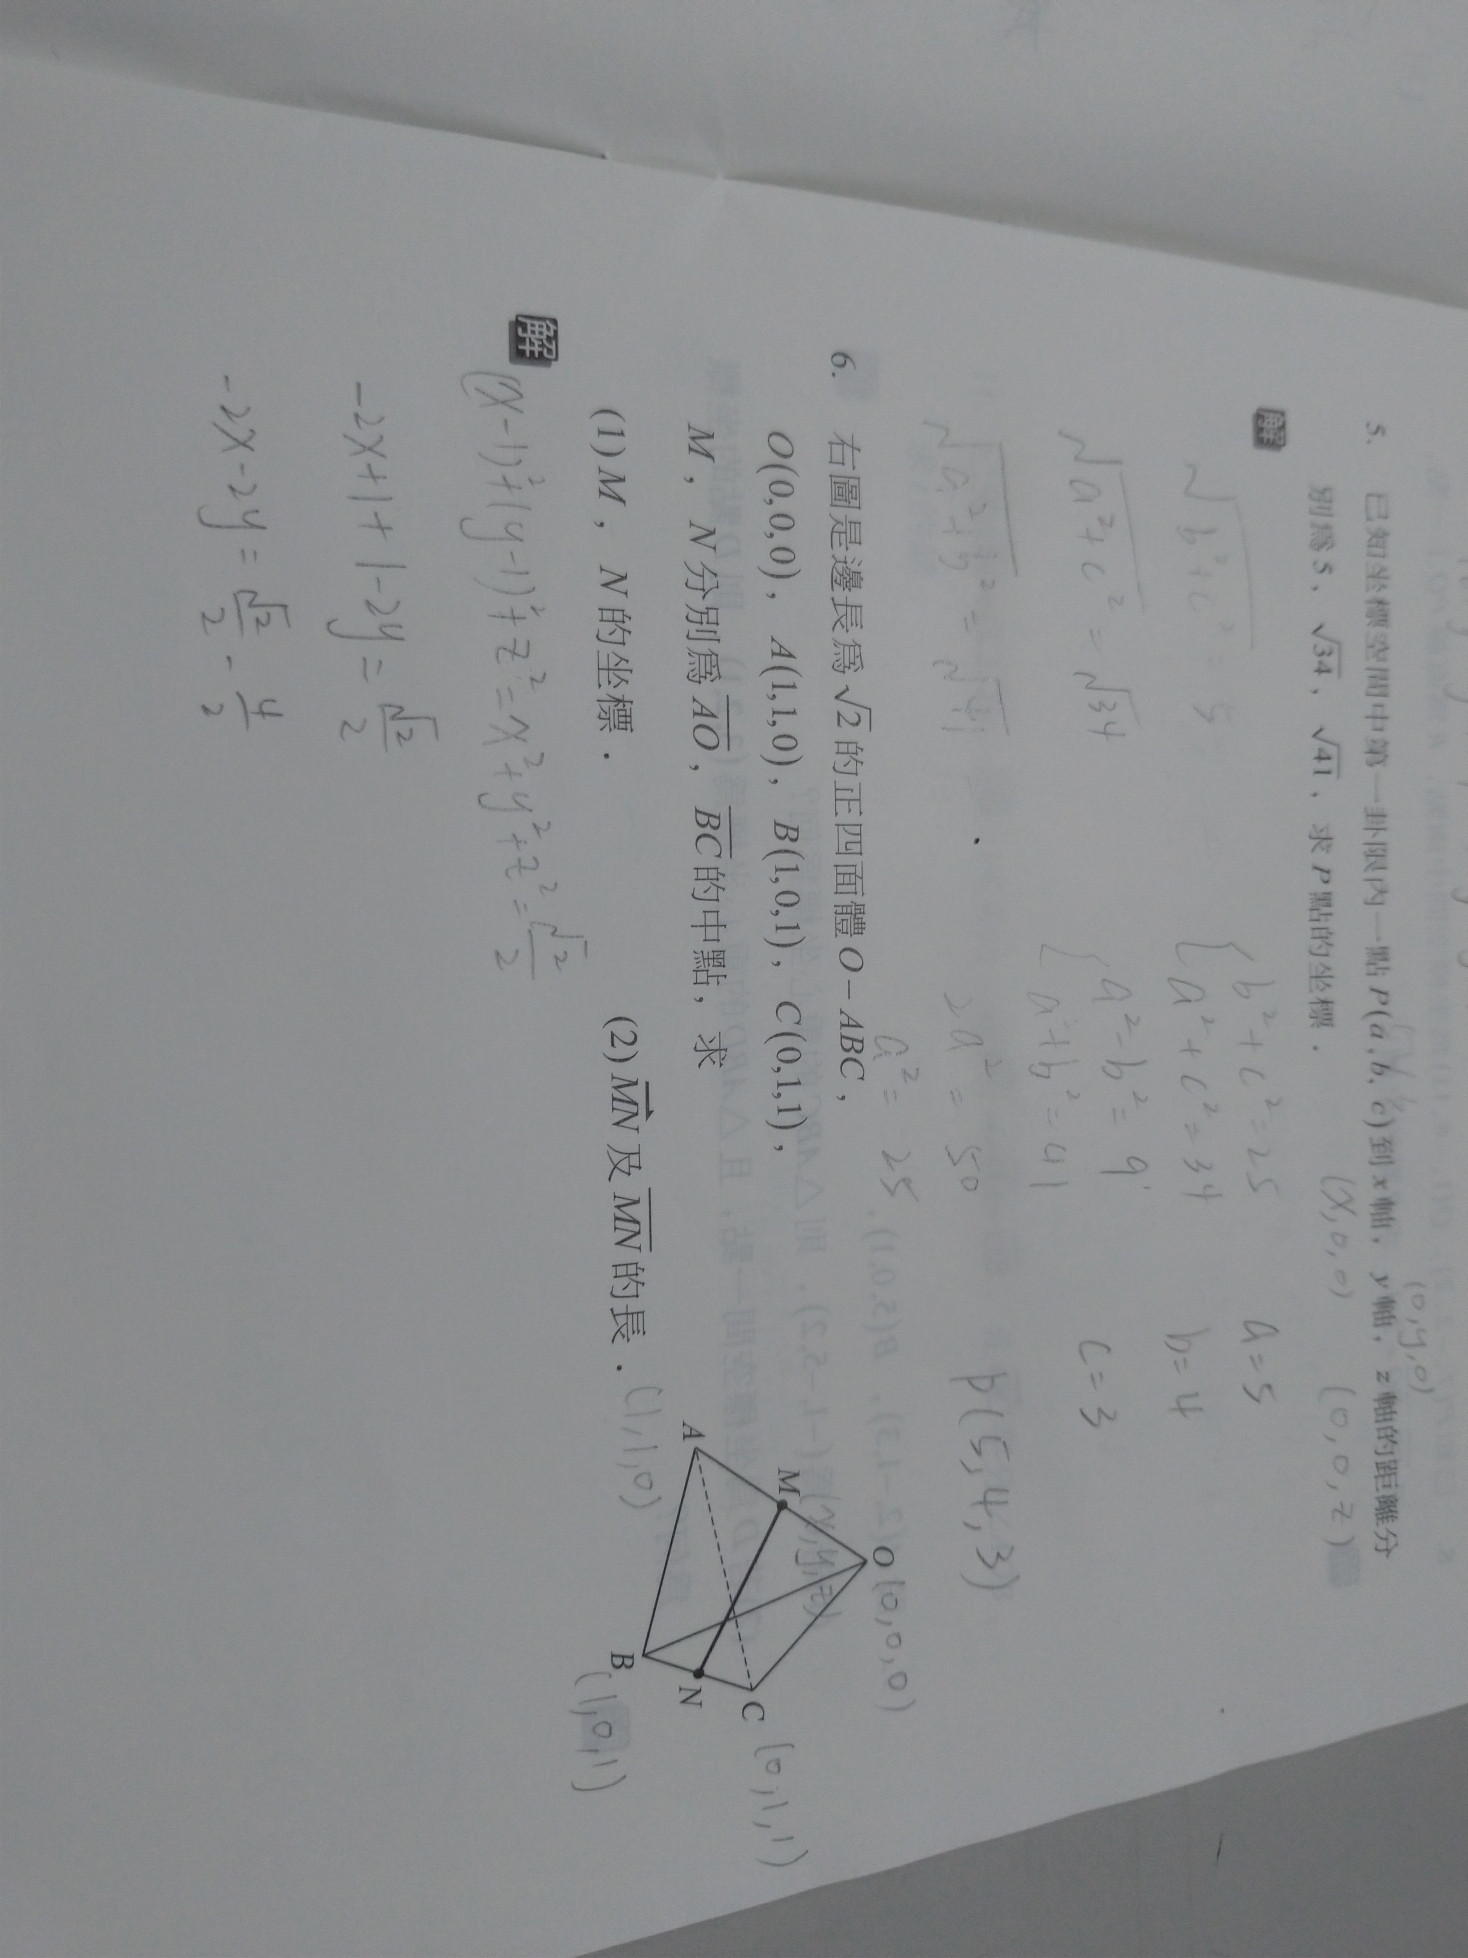 5. 已知坐標空間中第一卦限內一點P(a,b,c)到x軸,y軸,z軸的距離分
別為5、√34、√41,求P點的坐標.
(0,y,0)
(x,0,0) (0,0,z)
解
√b²+c² = 5
√a²+c² = √34
√a²+b² = √41
b²+c²=25
a²+c²=34
a²-b²=9
a²+b²=41
2a²=50
a²=25
a=5
b=4
c=3
P(5,4,3)
6. 右圖是邊長為√2的正四面體O-ABC,
O(0,0,0),A(1,1,0),B(1,0,1),C(0,1,1),
M,N分別為AO,BC的中點,求
(1) M,N的坐標. (2) MN及MN的長.
O (0,0,0)
M (x,y,z)
A (1,1,0)
C (0,1,1)
N
B (1,0,1)
解
(x-1)²+(y-1)²+z²=x²+y²+z²=√2/2
-2x+1+1-2y=√2/2
-2x-2y=√2/2-4/2